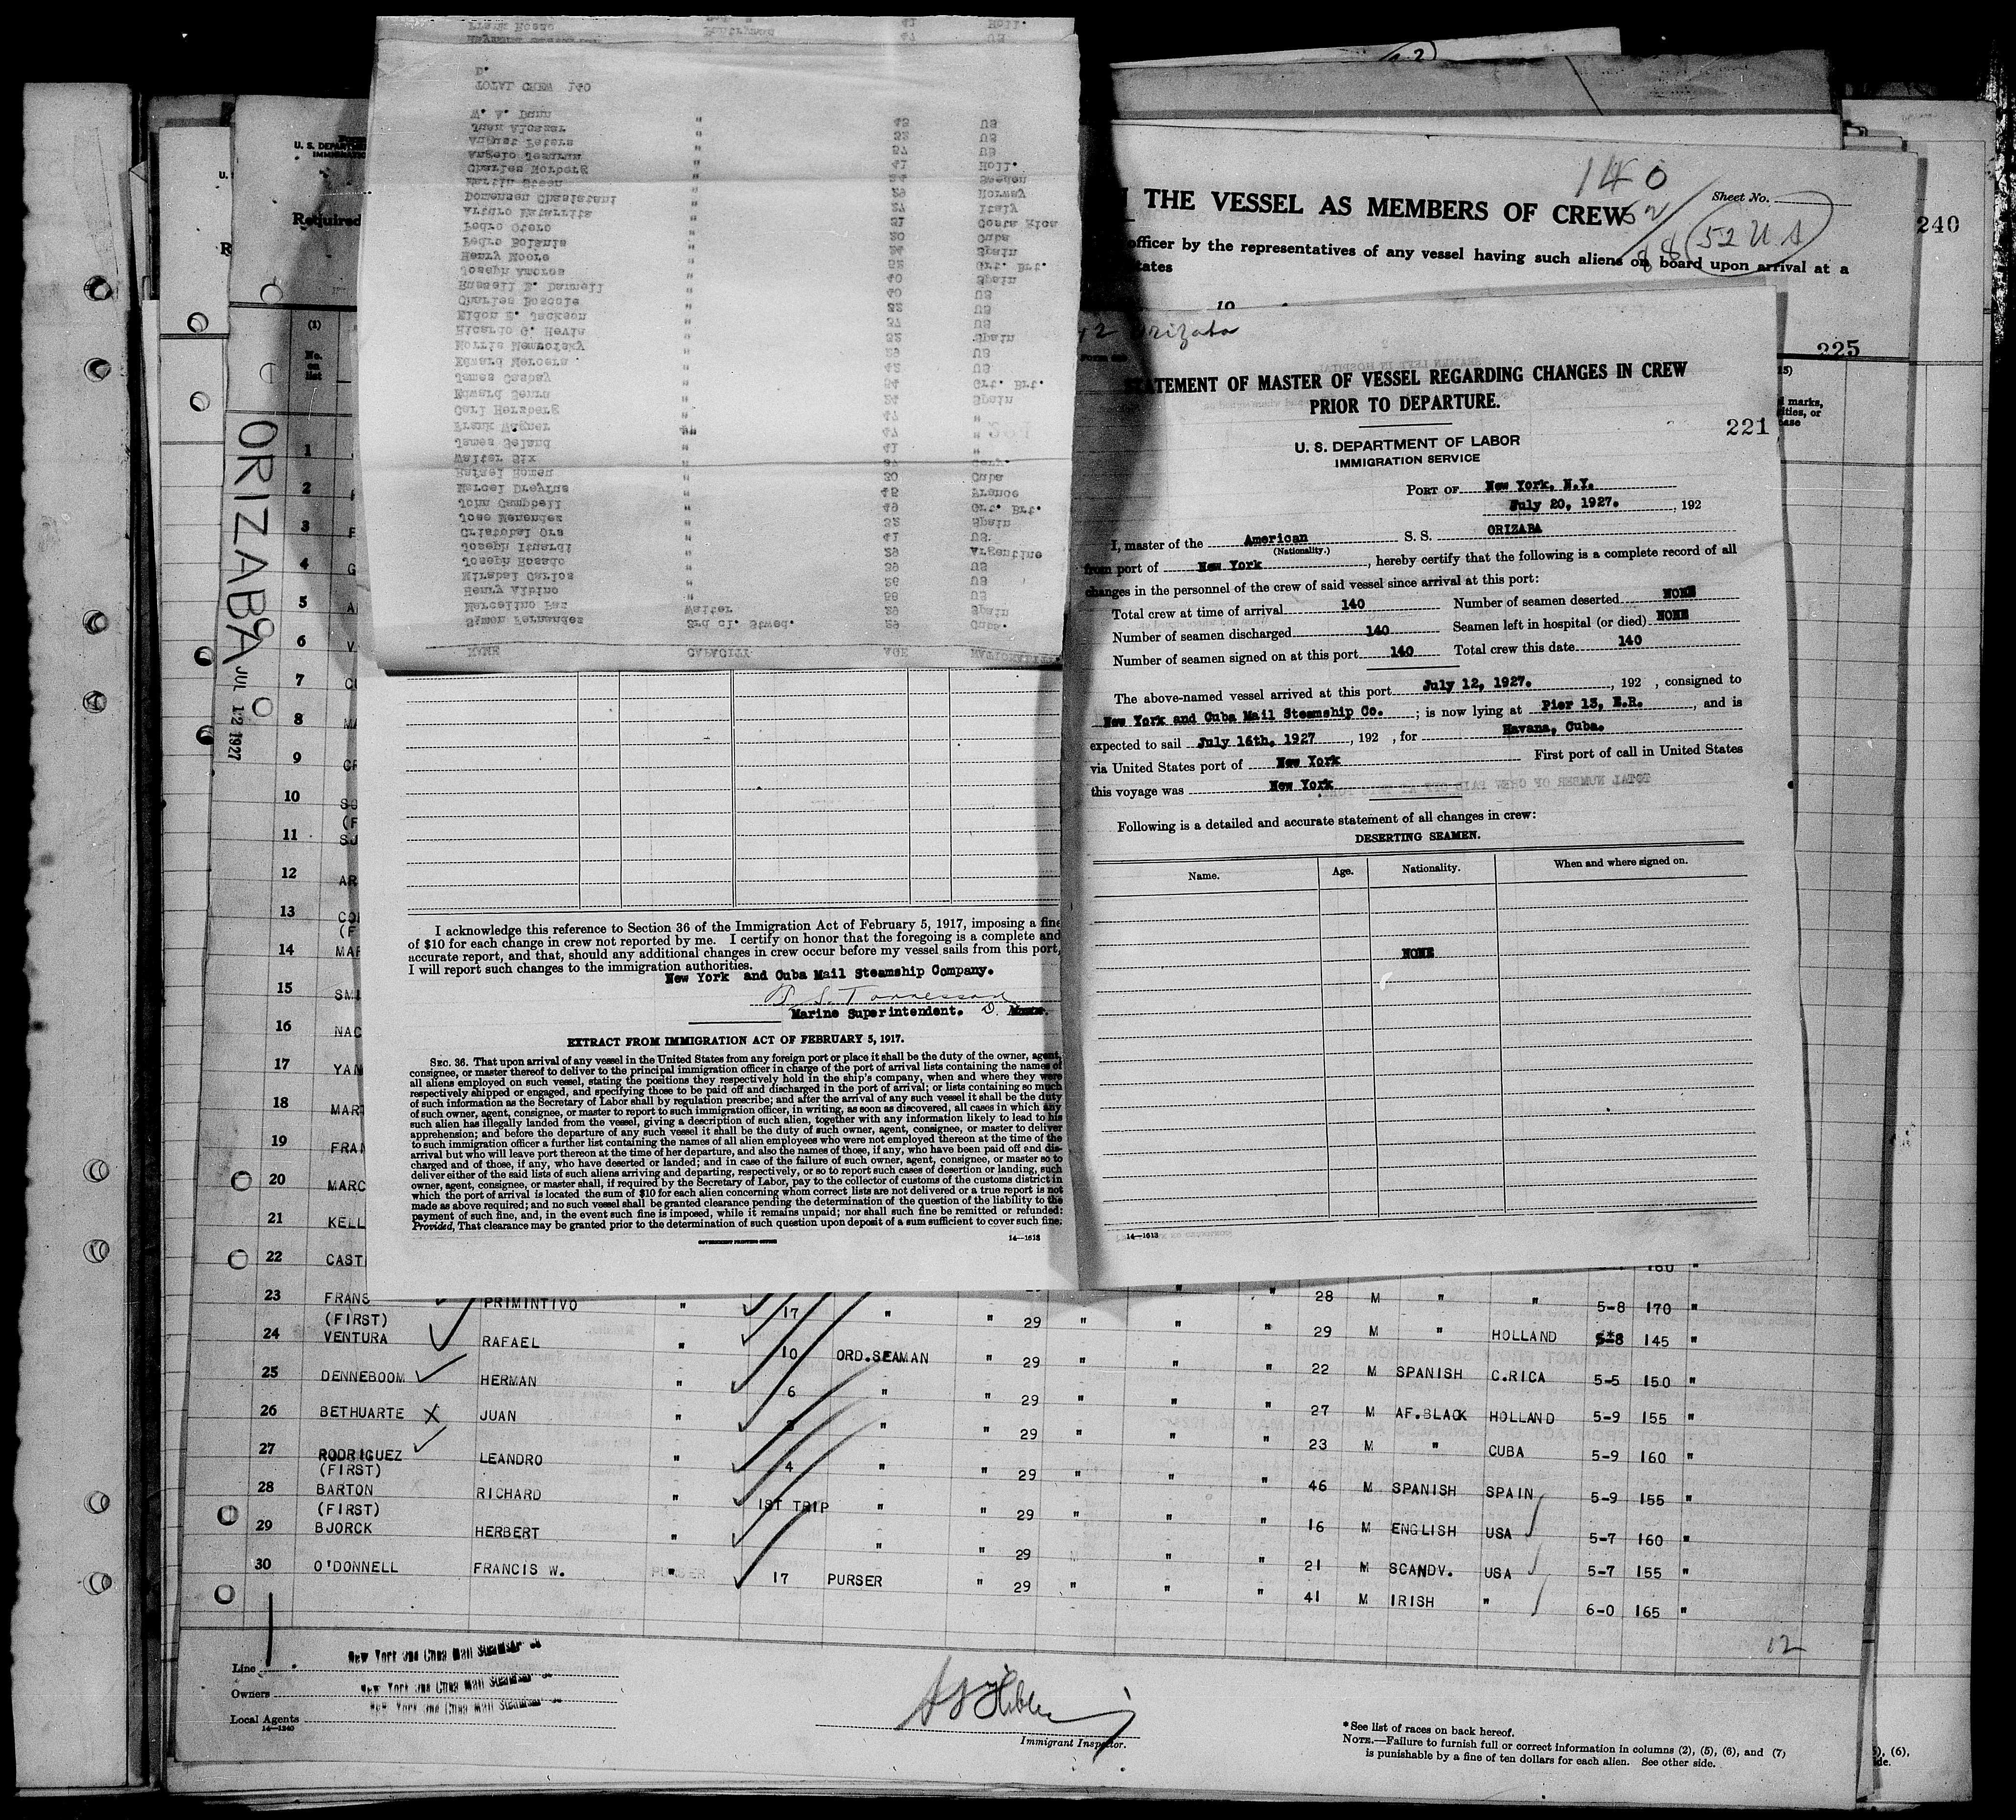 ORIZABA JUL 12 1927
U. S. DEPAR
IMMIGRATIO
Required
(1)
No. on list
Frank Rosado Pantryman 42 Holl.
47 US
D.
TOTAL CREW 140
W. V. Dunn " 45 US
Juan Alcazar " 52 US
August Peters " 57 US
Angelo Jeanran " 41 Holl.
Charles Norberg " Sweden
Martin Steen " 29 Norway
Domensen Chasistani " 27 Italy
Arturo Matarrita " 31 Costa Rica
Pedro Otero " 20 Cuba
Pedro Bolanis " 24 Spain
Henry Moore " 52 Grt. Brt.
Joseph Amoros " 40 Spain
Russell E. Darnell " 40 US
Charles Boscole " 32 US
Eldon E. Jackson " 37 US
Ricardo G. Hevia " 32 Spain
Morris Memrofsky " 29 US
Edward Mercera " 42 US
James Casbay " 54 Grt. Brt.
Edward Senra " 24 Spain
Carl Herzberg " 47 "
Frank Wagner " 47 "
James Seland " 41 "
Walter Six " 37 Germ.
Rafael Romeu " 30 Cuba
Marcel Dreyfus " 45 France
John Campbell " 49 Grt. Brt.
Jose Menendez " 32 Spain
Cristobal Ors " 41 US.
Joseph Ituardi " 29 Argentine
Joseph Rosado " 39 US
Mirabal Carlos " 26 US
Henry Albino " 56 US
Marcelino Paz Waiter 29 Spain
Symon Fernandez 3rd cl. Stwed. 29 Cuba.
NAME CAPACITY AGE NATIONALITY.
THE VESSEL AS MEMBERS OF CREW
140
52 U S
Sheet No.
officer by the representatives of any vessel having such aliens on board upon arrival at a
tates
240
225
221
Orizaba
STATEMENT OF MASTER OF VESSEL REGARDING CHANGES IN CREW
PRIOR TO DEPARTURE.
U. S. DEPARTMENT OF LABOR
IMMIGRATION SERVICE
PORT OF New York, N.Y.
July 20, 1927. , 192
I, master of the American S. S. ORIZABA
(Nationality.)
from port of New York , hereby certify that the following is a complete record of all
changes in the personnel of the crew of said vessel since arrival at this port:
Total crew at time of arrival 140 Number of seamen deserted NONE
Number of seamen discharged 140 Seamen left in hospital (or died) NONE
Number of seamen signed on at this port 140 Total crew this date 140
The above-named vessel arrived at this port July 12, 1927. , 192 , consigned to
New York and Cuba Mail Steamship Co. ; is now lying at Pier 13, E.R. , and is
expected to sail July 16th, 1927 , 192 , for Havana, Cuba.
via United States port of New York First port of call in United States
this voyage was New York
Following is a detailed and accurate statement of all changes in crew:
DESERTING SEAMEN.
Name. Age. Nationality. When and where signed on.
NONE
14—1613
I acknowledge this reference to Section 36 of the Immigration Act of February 5, 1917, imposing a fine
of $10 for each change in crew not reported by me. I certify on honor that the foregoing is a complete and
accurate report, and that, should any additional changes in crew occur before my vessel sails from this port,
I will report such changes to the immigration authorities.
New York and Cuba Mail Steamship Company.
Marine Superintendent. D.
EXTRACT FROM IMMIGRATION ACT OF FEBRUARY 5, 1917.
SEC. 36. That upon arrival of any vessel in the United States from any foreign port or place it shall be the duty of the owner, agent,
consignee, or master thereof to deliver to the principal immigration officer in charge of the port of arrival lists containing the names of
all aliens employed on such vessel, stating the positions they respectively hold in the ship's company, when and where they were
respectively shipped or engaged, and specifying those to be paid off and discharged in the port of arrival; or lists containing so much
of such information as the Secretary of Labor shall by regulation prescribe; and after the arrival of any such vessel it shall be the duty
of such owner, agent, consignee, or master to report to such immigration officer, in writing, as soon as discovered, all cases in which any
such alien has illegally landed from the vessel, giving a description of such alien, together with any information likely to lead to his
apprehension; and before the departure of any such vessel it shall be the duty of such owner, agent, consignee, or master to deliver
to such immigration officer a further list containing the names of all alien employees who were not employed thereon at the time of the
arrival but who will leave port thereon at the time of her departure, and also the names of those, if any, who have been paid off and dis-
charged and of those, if any, who have deserted or landed; and in case of the failure of such owner, agent, consignee, or master so to
deliver either of the said lists of such aliens arriving and departing, respectively, or so to report such cases of desertion or landing, such
owner, agent, consignee, or master shall, if required by the Secretary of Labor, pay to the collector of customs of the customs district in
which the port of arrival is located the sum of $10 for each alien concerning whom correct lists are not delivered or a true report is not
made as above required; and no such vessel shall be granted clearance pending the determination of the question of the liability to the
payment of such fine, and, in the event such fine is imposed, while it remains unpaid; nor shall such fine be remitted or refunded:
Provided, That clearance may be granted prior to the determination of such question upon deposit of a sum sufficient to cover such fine.
GOVERNMENT PRINTING OFFICE
14—1613
1
2
3 F
4 G
5 A
6 V
7
8 MA
9
10 SO
(F
11 SJ
12 AR
13 CO
(F
14 MAR
15 SMI
16 NAC
17 YAN
18 MART
19 FRAN
20 MARC
21 KELL
22 CAST 160 "
23 FRANS PRIMINTIVO " 17 " " 29 " " " 28 M " " 5-8 170 "
(FIRST)
24 VENTURA RAFAEL " 10 ORD.SEAMAN " 29 " " " 29 M " HOLLAND 5-8 145 "
25 DENNEBOOM HERMAN " 6 " " 29 " " " 22 M SPANISH C.RICA 5-5 150 "
26 BETHUARTE X JUAN " " " 29 " " " 27 M AF.BLACK HOLLAND 5-9 155 "
27 RODRIGUEZ LEANDRO " 4 " " 29 " " " 23 M " CUBA 5-9 160 "
(FIRST)
28 BARTON RICHARD " 1ST TRIP " " 29 " " " 46 M SPANISH SPAIN 5-9 155 "
(FIRST)
29 BJORCK HERBERT " " " 29 " " 16 M ENGLISH USA 5-7 160 "
30 O'DONNELL FRANCIS W. " 17 PURSER " 29 " " " 21 M SCANDV. USA 5-7 155 "
41 M IRISH " 6-0 165 "
12
Line New York and Cuba Mail Steamship
Owners New York and Cuba Mail Steamship
Local Agents New York and Cuba Mail Steamship
14—1240
Immigrant Inspector.
*See list of races on back hereof.
NOTE.—Failure to furnish full or correct information in columns (2), (5), (6), and (7)
is punishable by a fine of ten dollars for each alien. See other side.